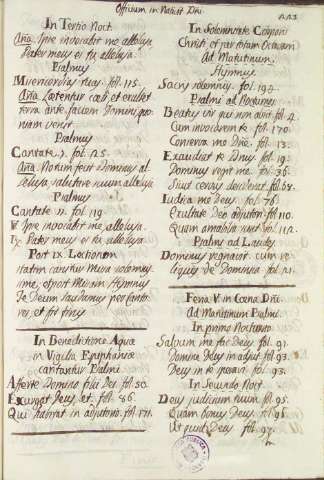 Officium in Nativit. Dñi.
In Tertio Noct.
Aña. Ipse invocabit me alleluya
Pater meus es tu alleluya.
Psalmus
Misericordias tuas. fol. 115.
Aña. Lætentur cæli et exultet
terra ante faciem Domini quo
niam venit.
Psalmus
Cantate. 1. fol. 125.
Aña. Notum fecit Dominus al
leluya salutare suum alleluya.
Psalmus
Cantate. 11. fol. 119.
V Ipse invocabit me, alleluya.
R. Pater meus es tu alleluya.
Post IX Lectionem
statim cantatur Missa solemniss
ime, et post Missam Hymnus
Te Deum laudamus per Canto
res, et fit finis
In Benedictione Aquæ
in Vigilia Epiphaniæ
cantantur Psalmi.
Afferte Domino filii Dei fol. 50.
Exurgat Deus, et. fol. 86.
Qui habitat in adjutorio. fol. 121.
In Solemnitate Corporis
Christi et per totam Octavam
Ad Matutinum.
Hymnus
Sacris solemniis. fol. 194.
Psalmi ad Nocturnos
Beatus vir qui non abiit fol. 4.
Cum invocarem te. fol. 170.
Conserva me Dñe. fol. 13.
Exaudiat te Dñus fol. 19.
Dominus regit me fol. 36.
Sicut cervus desiderat fol. 68.
Iudica me Deus. fol. 76.
Exultate Deo adjutori fol. 110.
Quam amabilia sunt fol. 112.
Psalmi ad Laudes
Dominus regnavit. cum re
liquis de Dominica fol. 21.
Feria V. in Cœna Dñi.
Ad Matutinum Psalmi.
In primo Nocturno
Salvum me fac Deus fol. 91.
Domine Deus in adjut. fol. 93.
Deus in te speravi fol. 93.
In Secundo Noct.
Deus judicium tuum fol. 95.
Quam bonus Deus. fol. 96
Ut quid Deus fol. 97.